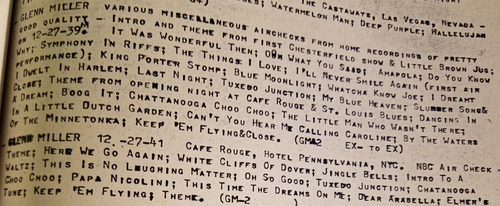 THE CASTAWAYS, LAS VEGAS, NEVADA -
; WATERMELON MAN; DEEP PURPLE; HALLELUJAH
GLENN MILLER VARIOUS MISCELLANEOUS AIRCHECKS FROM HOME RECORDINGS OF PRETTY
GOOD QUALITY - INTRO AND THEME FROM FIRST CHESTERFIELD SHOW & LITTLE BROWN JUG
ON 12-27-39; IT WAS WONDERFUL THEN; OOH WHAT YOU SAID; AMAPOLA; DO YOU KNOW
WHY; SYMPHONY IN RIFFS; THE THINGS I LOVE; I'LL NEVER SMILE AGAIN (FIRST AIR
PERFORMANCE); KING PORTER STOMP; BLUE MOONLIGHT; WHATCHA KNOW JOE; I DREAMT
I DWELT IN HARLEM; LAST NIGHT; TUXEDO JUNCTION; MY BLUE HEAVEN; SLUMBER SONG&
CLOSE; THEME FROM OPENING NIGHT AT CAFE ROUGE & ST. LOUIS BLUES; DANCING IN
A DREAM; BOOG IT; CHATTANOOGA CHOO CHOO; THE LITTLE MAN WHO WASN'T THERE;
IN A LITTLE DUTCH GARDEN; CAN'T YOU HEAR ME CALLING CAROLINE; BY THE WATERS
OF THE MINNETONKA; KEEP 'EM FLYING&CLOSE. (GM-2 EX- TO EX)
GLENN MILLER 12.-27-41 CAFE ROUGE, HOTEL PENNSYLVANIA, NYC. NBC AIR CHECK -
THEME; HERE WE GO AGAIN; WHITE CLIFFS OF DOVER; JINGLE BELLS; INTRO TO A
WALTZ; THIS IS NO LAUGHING MATTER; OH SO GOOD; TUXEDO JUNCTION; CHATANOOGA
CHOO CHOO; PAPA NICOLINI; THIS TIME THE DREAMS ON ME; DEAR ARABELLA; ELMER'S
TUNE; KEEP 'EM FLYING; THEME. (GM-2 )